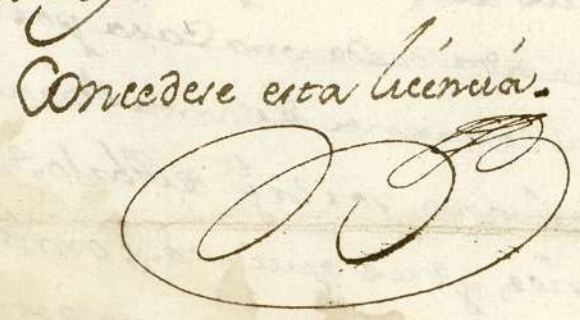 Concedese esta licencia.